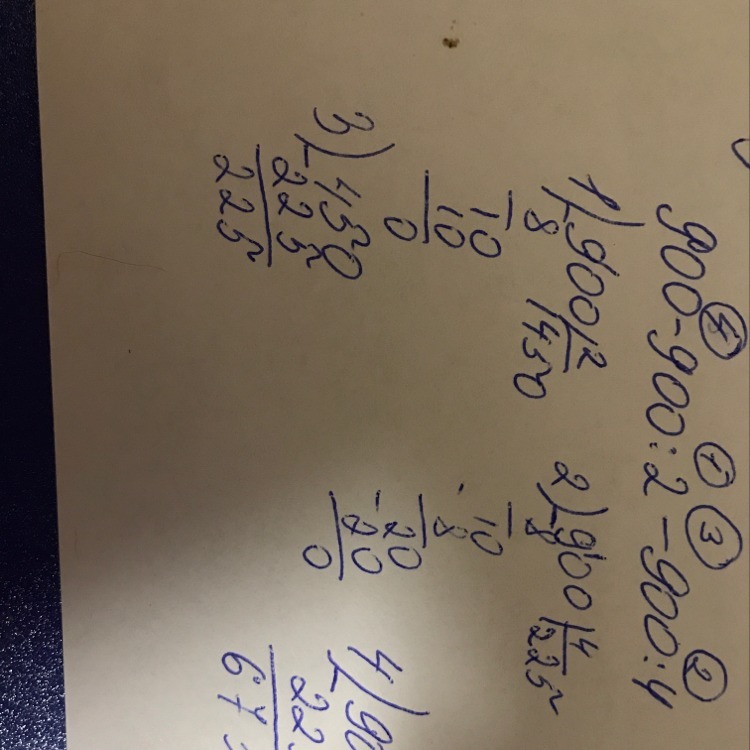 ④ ① ③ ②
900-900:2-900:4
1) 900 | 2
- 8 | 450
10
10
0
2) 900 | 4
- 8 | 225
10
- 8
20
- 20
0
3) - 450
225
225
4) - 90
22
67